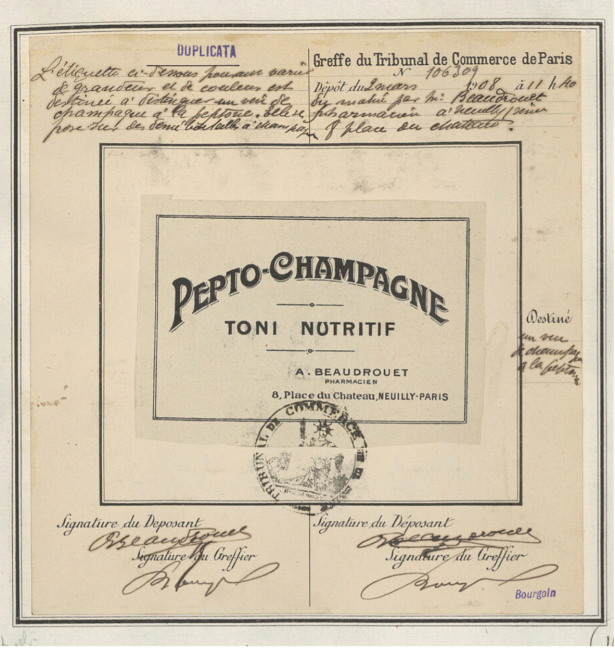 DUPLICATA
L'étiquette ci-dessous pouvant varier
de grandeur et de couleur est
destinée à distinguer un vin de
champagne à la peptone. Elle se
pose sur des demi bouteilles à champagne
Greffe du Tribunal de Commerce de Paris
N° 106309
Dépôt du 2 mars 1908 à 11 h 40
du matin par Mr Beaudrouet
pharmacien à Neuilly s/ Seine
8 place du château.
PEPTO-CHAMPAGNE
TONI NUTRITIF
A. BEAUDROUET
PHARMACIEN
8, Place du Chateau, NEUILLY-PARIS
TRIBUNAL DE COMMERCE
Destiné
un vin
de champagne
à la peptone
Signature du Déposant
Beaudrouet
Signature du Greffier
Bourgoin
Signature du Déposant
Beaudrouet
Signature du Greffier
Bourgoin
Bourgoin